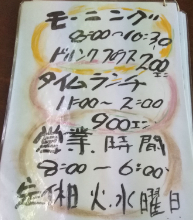 モーニング
8:00〜10:30
ドリンクプラス200エン
タイムランチ
11:00〜2:00
900エン
営業時間
8:00〜6:00
定休火.水曜日